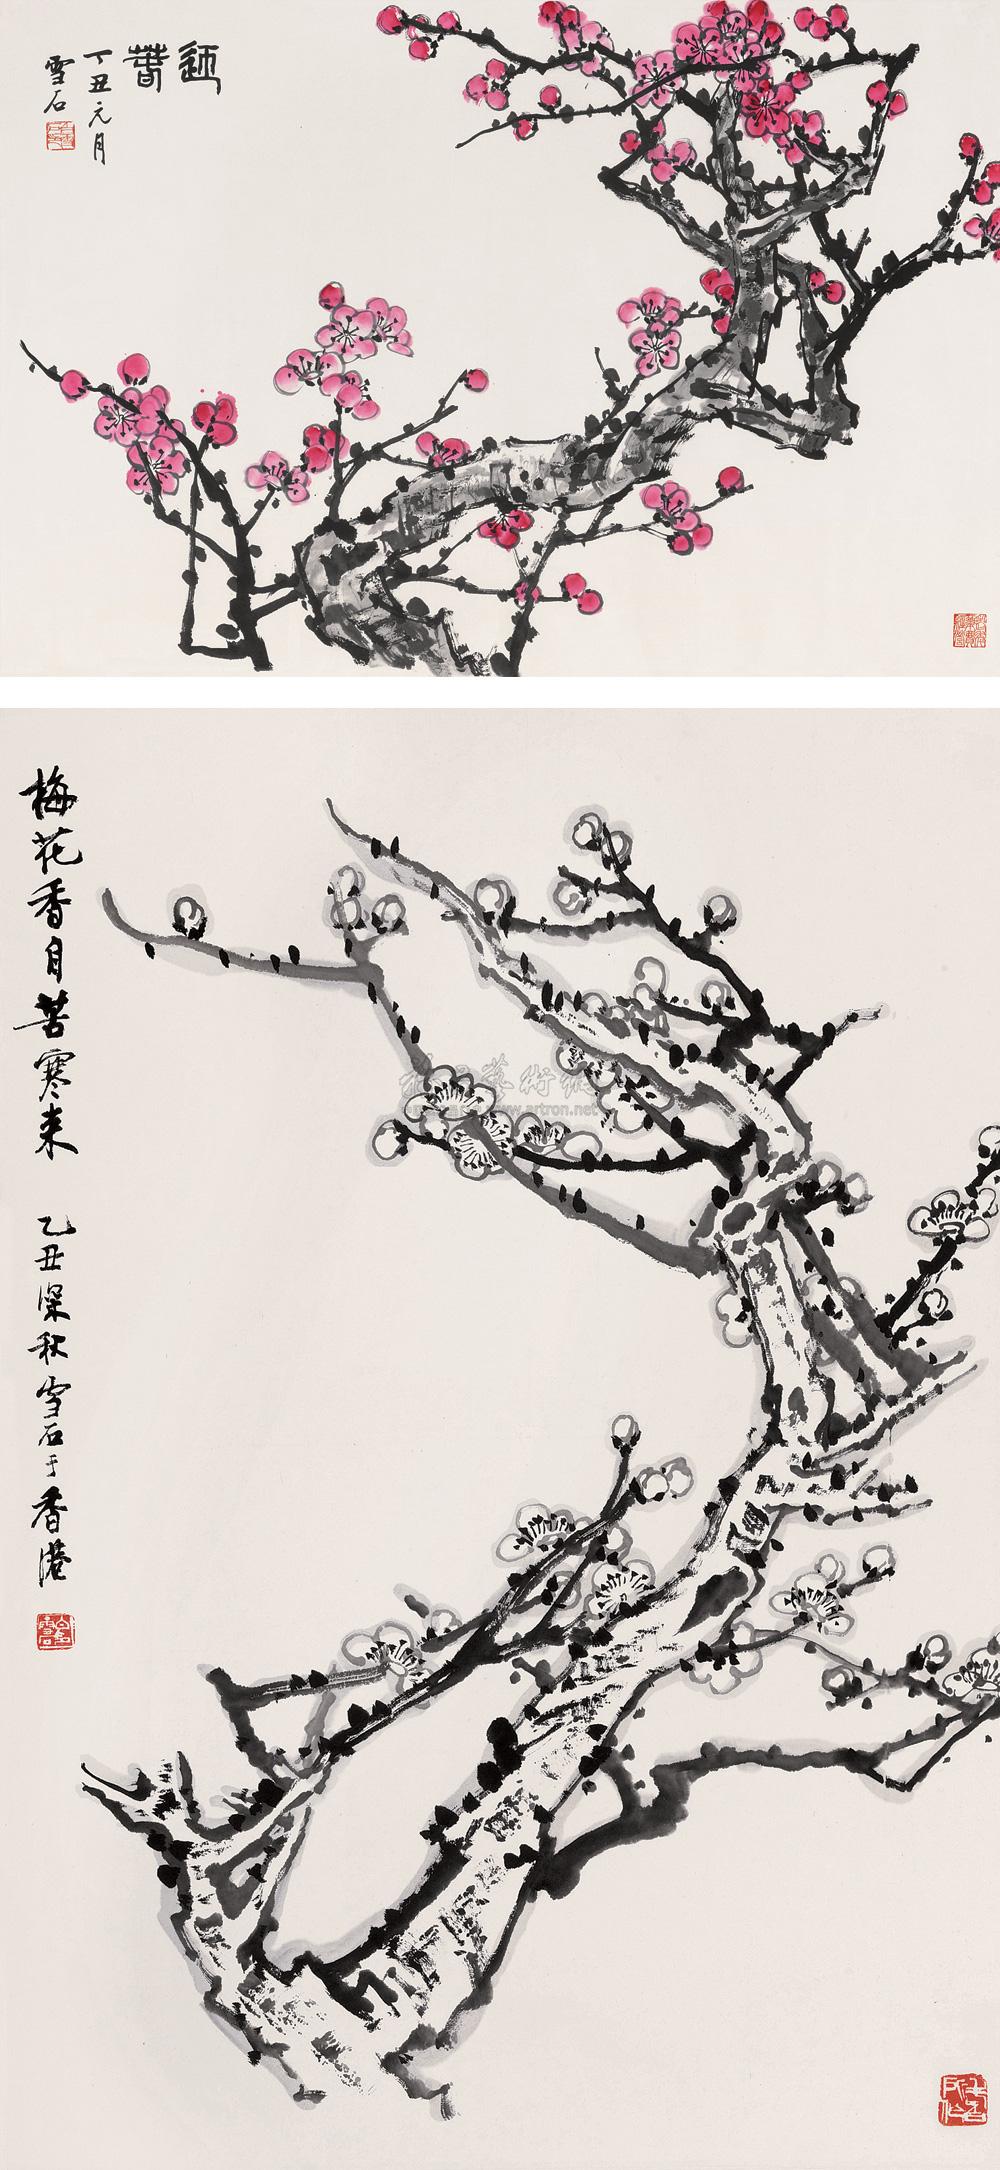 迎春
丁丑元月
雪石
梅花香自苦寒来 乙丑深秋雪石于香港
www.artron.net